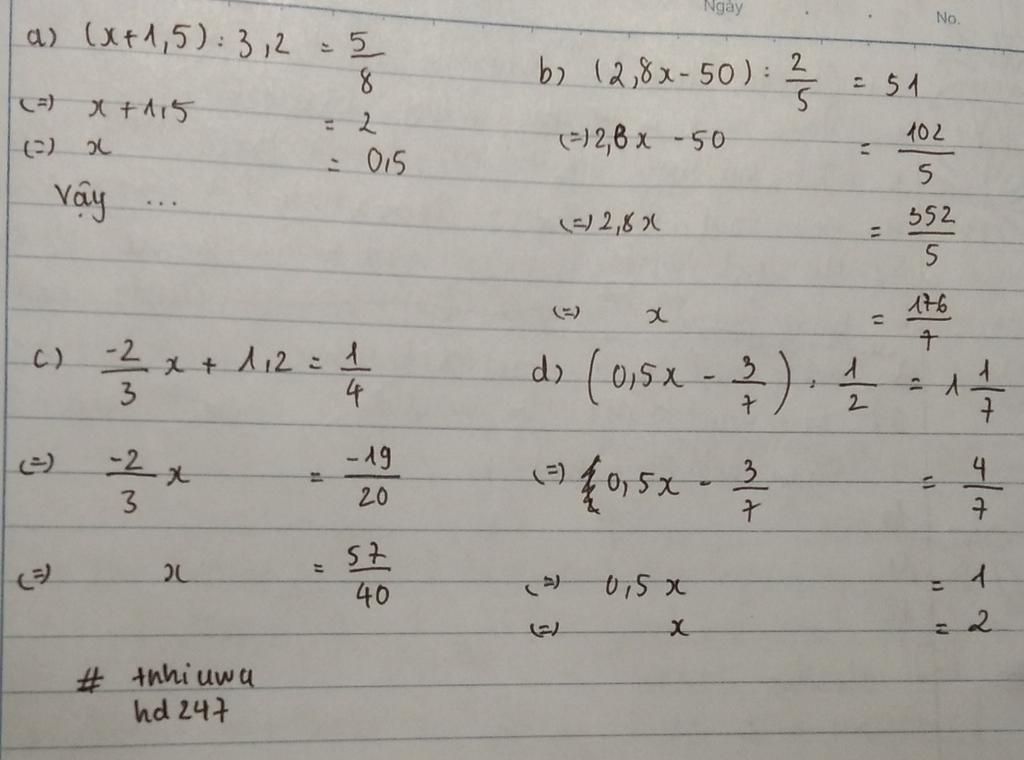 Ngày . . No.
a) (x+1,5) : 3,2 = 5/8
(=) x+1,5 = 2
(=) x = 0,5
Vậy ...
b) (2,8x-50) : 2/5 = 51
(=) 2,8x - 50 = 102/5
(=) 2,8x = 352/5
(=) x = 176/7
c) -2/3 x + 1,2 = 1/4
(=) -2/3 x = -19/20
(=) x = 57/40
d) (0,5x - 3/7) : 1/2 = 1 1/7
(=) 0,5x - 3/7 = 4/7
(=) 0,5x = 1
(=) x = 2
# tnhiuwu
hd247